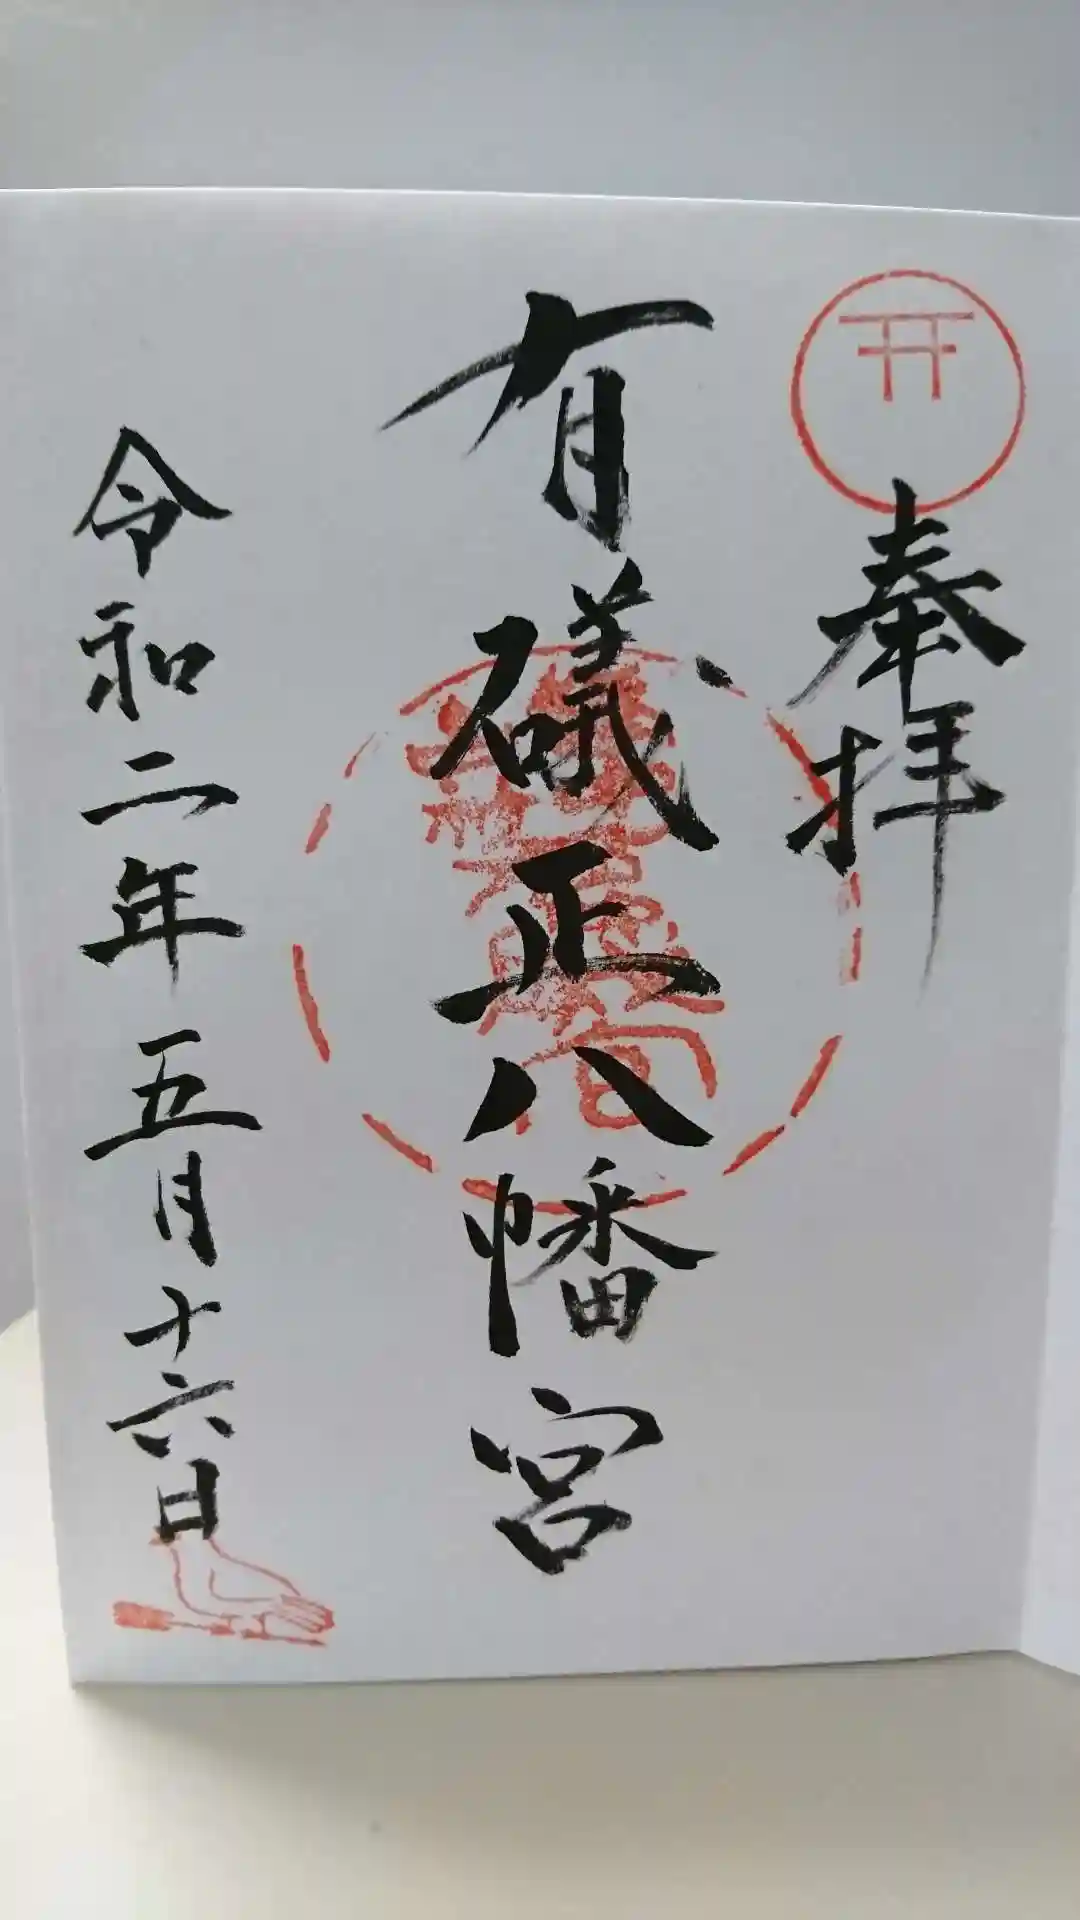 奉拝
有礒正八幡宮
令和二年五月十六日